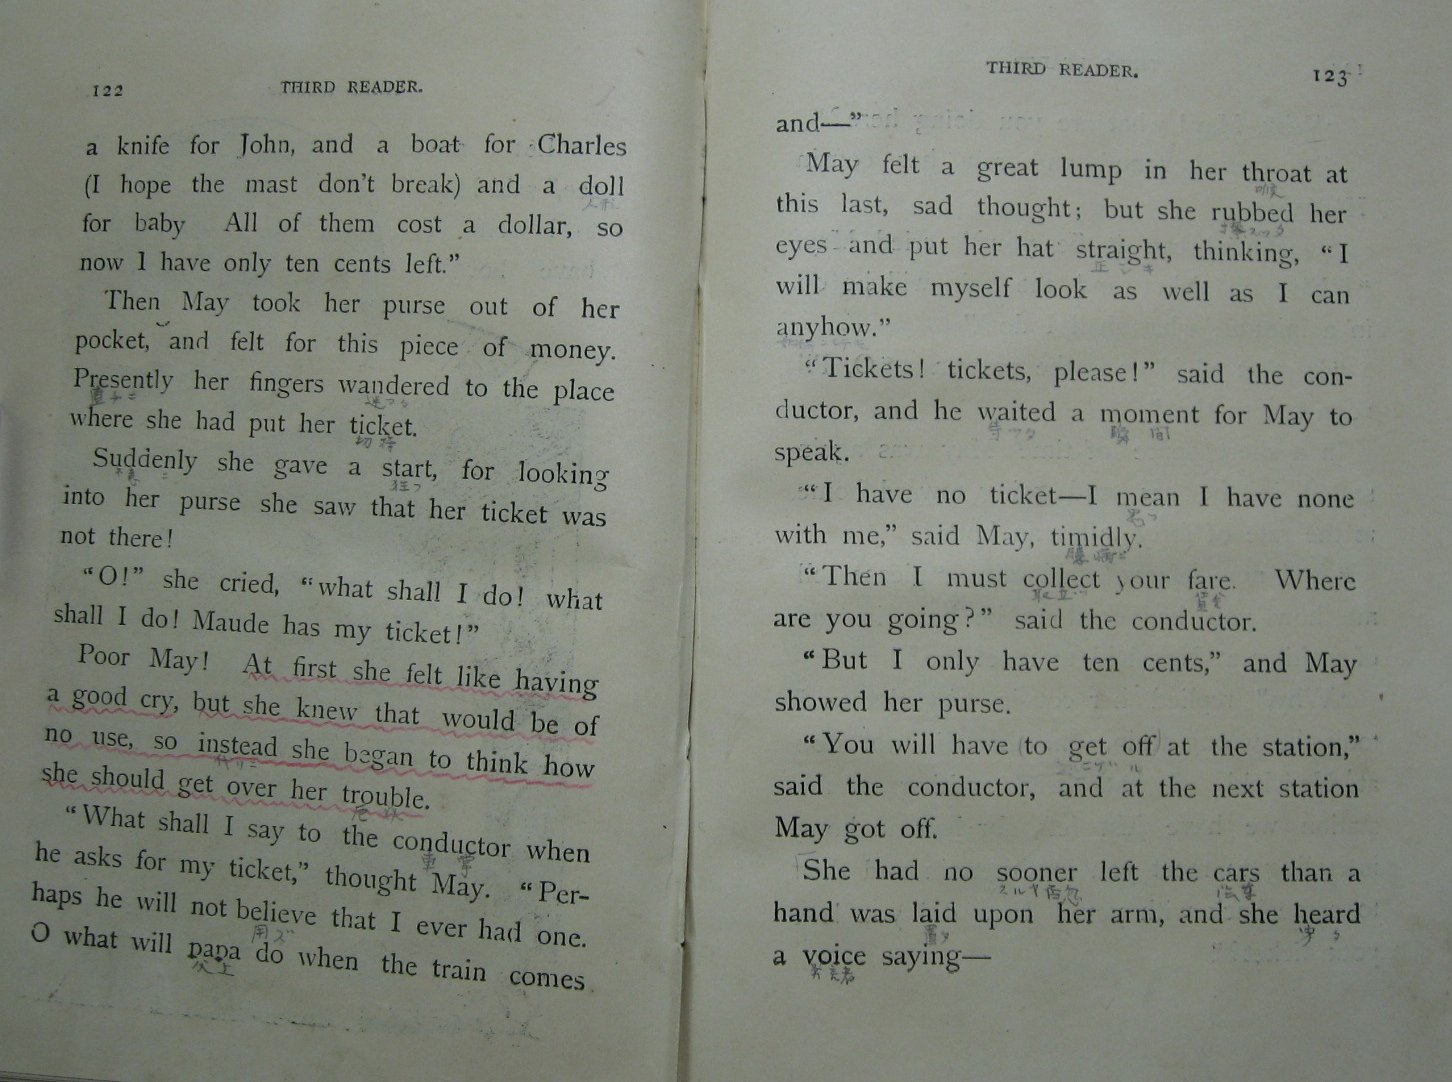 122
THIRD READER.
a knife for John, and a boat for Charles
(I hope the mast don't break) and a doll
人形
for baby All of them cost a dollar, so
now I have only ten cents left.”
Then May took her purse out of her
pocket, and felt for this piece of money.
Presently her fingers wandered to the place
直チニ
where she had put her ticket.
切符
Suddenly she gave a start, for looking
into her purse she saw that her ticket was
not there!
“O!” she cried, “what shall I do! what
shall I do! Maude has my ticket!”
Poor May! At first she felt like having
a good cry, but she knew that would be of
no use, so instead she began to think how
she should get over her trouble.
“What shall I say to the conductor when
車掌
he asks for my ticket,” thought May. “Per-
haps he will not believe that I ever had one.
用ズ
O what will papa do when the train comes
父上
THIRD READER.
123
and—”
May felt a great lump in her throat at
喉
this last, sad thought; but she rubbed her
擦スッタ
eyes and put her hat straight, thinking, “I
正シキ
will make myself look as well as I can
anyhow.”
“Tickets! tickets, please!” said the con-
ductor, and he waited a moment for May to
待ツタ
瞬間
speak.
“I have no ticket—I mean I have none
with me,” said May, timidly.
臆病ニ
“Then I must collect your fare. Where
取立ツ
賃金
are you going?” said the conductor.
“But I only have ten cents,” and May
showed her purse.
“You will have to get off at the station,”
said the conductor, and at the next station
May got off.
She had no sooner left the cars than a
汽車
hand was laid upon her arm, and she heard
置タ
a voice saying—